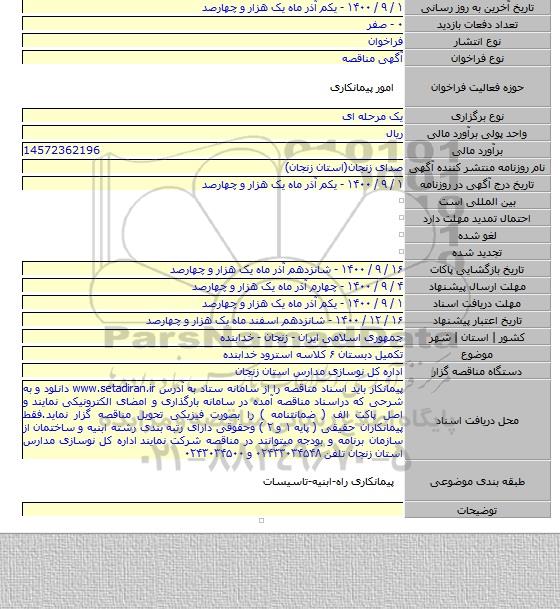 تاریخ آخرین به روز رسانی ۱ / ۹ / ۱۴۰۰ - یکم آذر ماه یک هزار و چهارصد
تعداد دفعات بازدید ۰ - صفر
نوع انتشار فراخوان
نوع فراخوان آگهی مناقصه
حوزه فعالیت فراخوان امور پیمانکاری
نوع برگزاری یک مرحله ای
واحد پولی برآورد مالی ریال
برآورد مالی 14572362196
نام روزنامه منتشر کننده آگهی صدای زنجان(استان زنجان)
تاریخ درج آگهی در روزنامه ۱ / ۹ / ۱۴۰۰ - یکم آذر ماه یک هزار و چهارصد
بین المللی است
احتمال تمدید مهلت دارد
لغو شده
تجدید شده
تاریخ بازگشایی پاکات ۱۶ / ۹ / ۱۴۰۰ - شانزدهم آذر ماه یک هزار و چهارصد
مهلت ارسال پیشنهاد ۴ / ۹ / ۱۴۰۰ - چهارم آذر ماه یک هزار و چهارصد
مهلت دریافت اسناد ۱ / ۹ / ۱۴۰۰ - یکم آذر ماه یک هزار و چهارصد
تاریخ اعتبار پیشنهاد ۱۶ / ۱۲ / ۱۴۰۰ - شانزدهم اسفند ماه یک هزار و چهارصد
کشور | استان | شهر جمهوری اسلامی ایران - زنجان - خدابنده
موضوع تکمیل دبستان ۶ کلاسه استرود خدابنده
دستگاه مناقصه گزار اداره کل نوسازی مدارس استان زنجان
محل دریافت اسناد
پیمانکار باید اسناد مناقصه را از سامانه ستاد به آدرس www.setadiran.ir دانلود و به
شرحی که دراسناد مناقصه آمده در سامانه بارگذاری و امضای الکترونیکی نمایند و
اصل پاکت الف ( ضمانتنامه ) را بصورت فیزیکی تحویل مناقصه گزار نماید.فقط
پیمانکاران حقیقی ( پایه ۱ و ۲ ) وحقوقی دارای رتبه بندی رشته ابنیه و ساختمان از
سازمان برنامه و بودجه میتوانند در مناقصه شرکت نمایند اداره کل نوسازی مدارس
استان زنجان تلفن ۰۲۴۳۳۰۳۴۵۴۸ و ۰۲۴۳۰۳۴۵۰۰
طبقه بندی موضوعی پیمانکاری راه-ابنیه-تاسیسات
توضیحات
ParsNamadData
۰۲۱-۸۸۳۴۹۶۷۰-۵